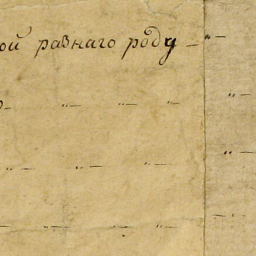 ой равнаго роду — „ —
— „ — „ — „ — „ —
— „ — „ — „ — „ —
— „ — „ — „ — „ —